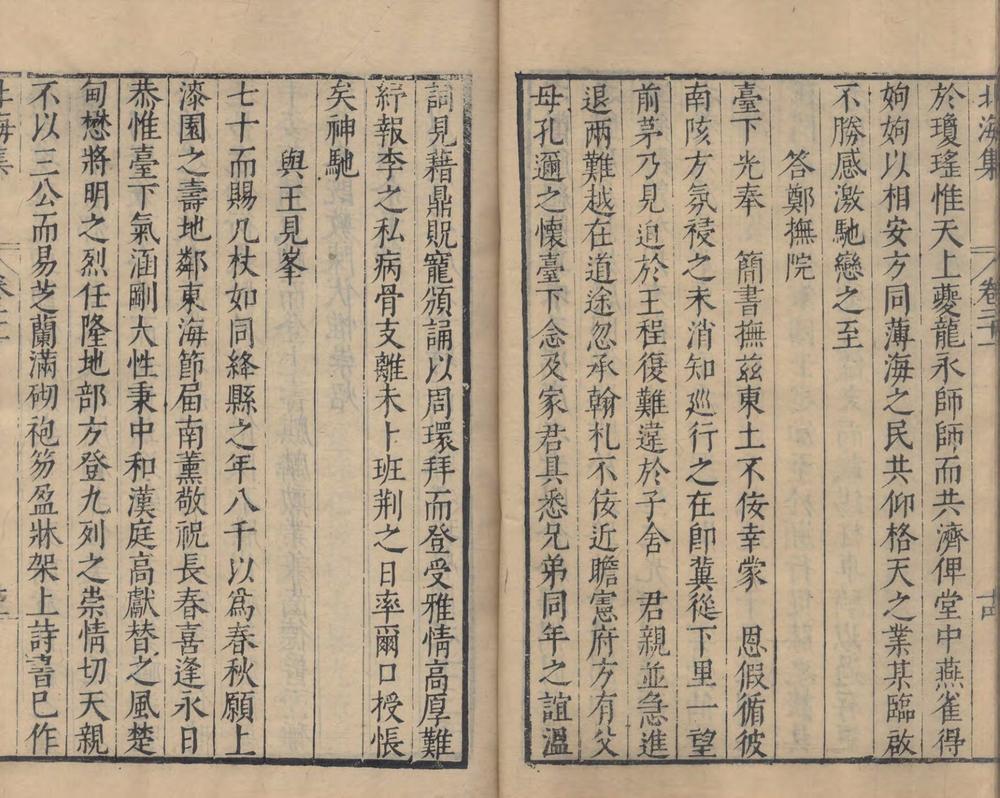 北海集 卷三十一 十四
於瓊瑤惟天上夔龍永師師而共濟俾堂中燕雀得
姁姁以相安方同薄海之民共仰格天之業某臨啟
不勝感激馳戀之至
答鄭撫院
臺下光奉 簡書撫茲東土不佞幸蒙 恩假循彼
南陔方氛祲之未消知巡行之在即冀從下里一望
前茅乃見迫於王程復難違於子舍 君親並急進
退兩難越在道途忽承翰札不佞近瞻憲府方有父
母孔邇之懷臺下念及家君具悉兄弟同年之誼溫
詞見藉鼎貺寵頒誦以周環拜而登受雅情高厚難
紓報李之私病骨支離未卜班荆之日率爾口授悵
矣神馳
與王見峯
七十而賜几杖如同絳縣之年八千以為春秋願上
漆園之壽地鄰東海節屆南薰敬祝長春喜逢永日
恭惟臺下氣涵剛大性秉中和漢庭高獻替之風楚
甸懋將明之烈任隆地部方登九列之崇情切天親
不以三公而易芝蘭滿砌袍笏盈牀架上詩書已作